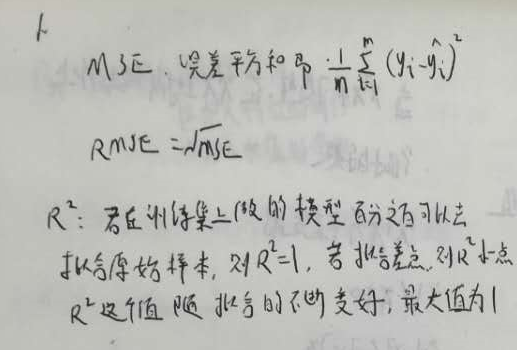 1.
MSE: 误差平方和 即 \frac{1}{m} \sum_{i=1}^{m} (y_i - \hat{y_i})^2
RMSE = \sqrt{MSE}
R²: 若在训练集上做的模型百分之百可以去
拟合原始样本, 则R²=1, 若拟合差点, 则R²小一点
R²这个值 随 拟合的不断变好, 最大值为1